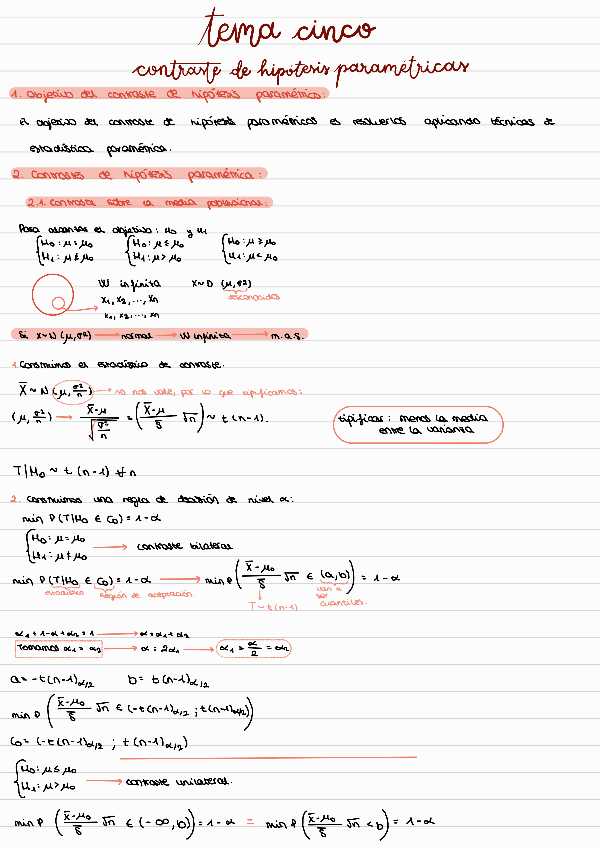 tema cinco
contraste de hipótesis paramétricas
1. Objetivo del contraste de hipótesis paramétrico:
El objetivo del contraste de hipótesis paramétricos es resolverlos aplicando técnicas de
estadística paramétrica.
2. Contrastes de hipótesis paramétrica:
2.1. Contraste sobre la media poblacional:
Para alcanzar el objetivo: μ₀ y μ₁
{H₀: μ = μ₀ {H₀: μ ≤ μ₀ {H₀: μ ≥ μ₀
{H₁: μ ≠ μ₀ {H₁: μ > μ₀ {H₁: μ < μ₀
W infinita X ~ D (μ, σ²)
x₁, x₂, ..., xₙ desconocidos
x₁, x₂, ..., xₙ
Si X ~ N (μ, σ²) → normal → W infinita → m.a.s.
1. Construimos el estadístico de contraste.
X̄ ~ N (μ, σ²/n) → no nos vale, por lo que tipificamos:
(μ, σ²/n) → (X̄ - μ)/√(σ²/n) = ((X̄ - μ)/S √n) ~ t (n-1).
tipificar: menos la media
entre la varianza
T|H₀ ~ t (n-1) ∀n
2. Construimos una regla de decisión de nivel α:
min P (T|H₀ ∈ C₀) = 1-α
{H₀: μ = μ₀
{H₁: μ ≠ μ₀ → contraste bilateral
min P (T|H₀ ∈ C₀) = 1-α → min P ((X̄ - μ₀)/S √n ∈ (a, b)) = 1-α
estadístico región de aceptación van a ser cuantiles.
T ~ t (n-1)
α₁ + 1-α + α₂ = 1 → α = α₁ + α₂
Tomamos α₁ = α₂ → α = 2α₁ → α₁ = α/2 = α₂
a = -t (n-1)α/2 b = t (n-1)α/2
min P ((X̄ - μ₀)/S √n ∈ (-t (n-1)α/2 ; t (n-1)α/2))
C₀ = (-t (n-1)α/2 ; t (n-1)α/2)
{H₀: μ ≤ μ₀
{H₁: μ > μ₀ → contraste unilateral.
min P ((X̄ - μ₀)/S √n ∈ (-∞, b)) = 1-α = min P ((X̄ - μ₀)/S √n < b) = 1-α